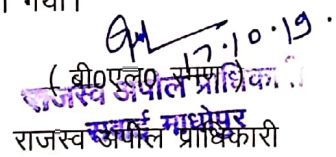 गया।
17.10.19.
( बी0एल0 रमण )
राजस्व अपील प्राधिकारी
सवाई माधोपुर
राजस्व अपील प्राधिकारी